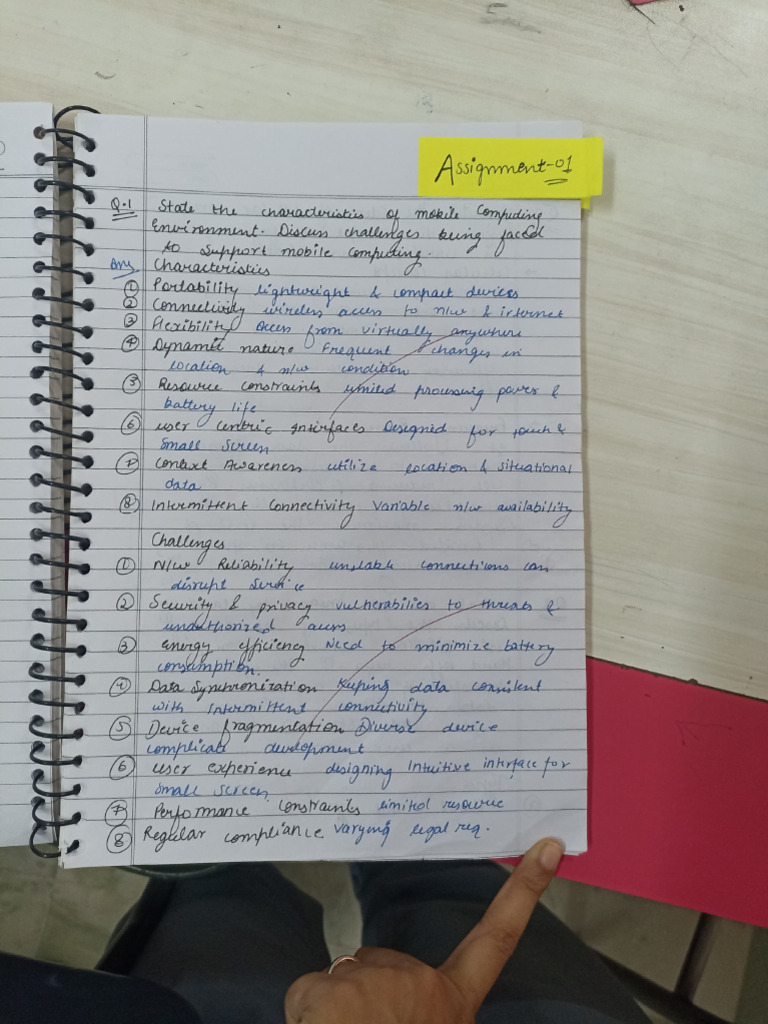 Assignment-01
Q.1 State the characteristics of mobile Computing
Environment. Discuss challenges being faced
to support mobile computing.
Ans Characteristics
① Portability lightweight & compact devices
② Connectivity wireless access to n/w & internet
③ Flexibility access from virtually anywhere
④ Dynamic nature Frequent changes in
location & n/w condition
⑤ Resource constraints limited processing power &
battery life
⑥ user centric interfaces Designed for touch &
small screen
⑦ Context Awareness utilize location & situational
data
⑧ Intermittent Connectivity Variable n/w availability
Challenges
① N/w Reliability unstable connections can
disrupt service
② Security & privacy vulnerabilies to threats &
unauthorized access
③ Energy efficiency Need to minimize battery
consumption.
④ Data Synchronization Keeping data consistent
with Intermittent connectivity
⑤ Device fragmentation Diverse device
complicate development
⑥ user experience designing Intuitive interface for
small screen
⑦ Performance constraints limited resource
⑧ Regular compliance varying legal req.